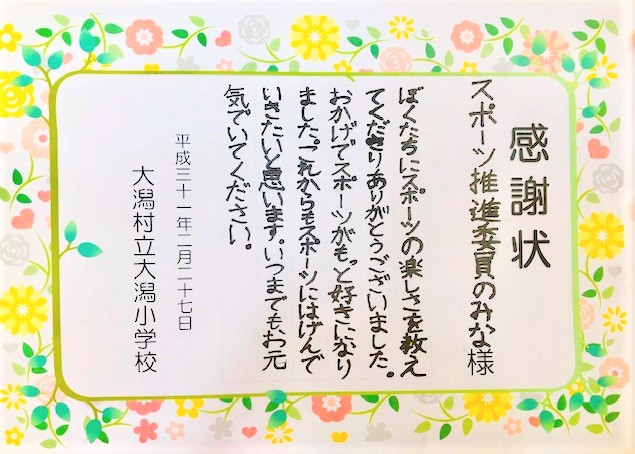 感謝状
スポーツ推進委員のみな様
ぼくたちにスポーツの楽しさを教え
てくださりありがとうございました。
おかげでスポーツがもっと好きになり
ました。これからもスポーツにはげんで
いきたいと思います。いつまでも、お元
気でいてください。
平成三十一年二月二十七日
大潟村立大潟小学校